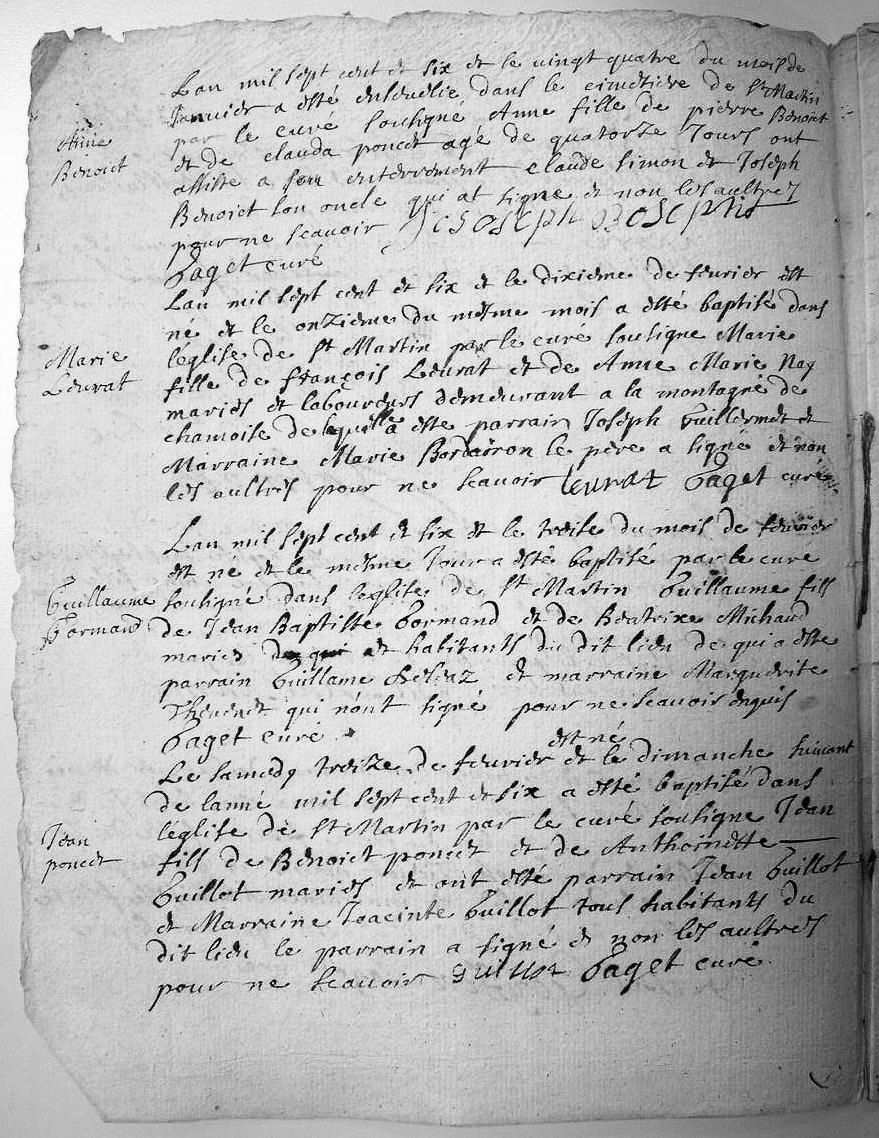 Lan mil sept cent et six et le vingt quatre du mois de
Janvier a esté ensevelie dans le cimetière de St Martin
par le curé soussigné Anne fille de pierre Benoict
Anne
Benoict
et de clauda poncet agé de quatorze Jours ont
assisté a son enterrement claude simon et Joseph
Benoict son oncle qui at signé et non les aultres
pour ne scavoir
paget curé
Lan mil sept cent et six et le dixieme de febvrier est
né et le onzieme du mesme mois a esté baptisé dans
Marie
Levrat
léglise de St Martin par le curé sousigné Marie
fille de françois Levrat et de Anne Marie Nay
mariés et laboureurs demeurant a la montagne de
chamoise de a esté parrain Joseph Guillermet et
Marraine Marie le père a signé et non
les aultres pour ne scavoir Levrat paget curé
Lan mil sept cent et six et le treise du mois de febvrier
est né et le mesme Jour a esté baptisé par le curé
Guillaume
Gormand
sousigné dans leglise de St Martin Guillaume fils
de Jean Baptiste Gormand et de Beatrixe Michaud
mariés et habitants du dit lieu de qui a esté
parrain Guillame et marraine Marguerite
Thevenet qui nont signé pour ne scavoir enquis
paget curé
est né
Le samedy treize de febvrier et le dimanche suivant
de lanné mil sept cent et six a esté baptisé dans
Jean
poncet
léglise de St Martin par le curé sousigné Jean
fils de Benoict poncet et de Anthoinette
Guillot mariés et ont esté parrain Jean Guillot
et Marraine Joacinte Guillot tous habitants du
dit lieu le parrain a signé et non les aultres
pour ne scavoir guillot paget curé